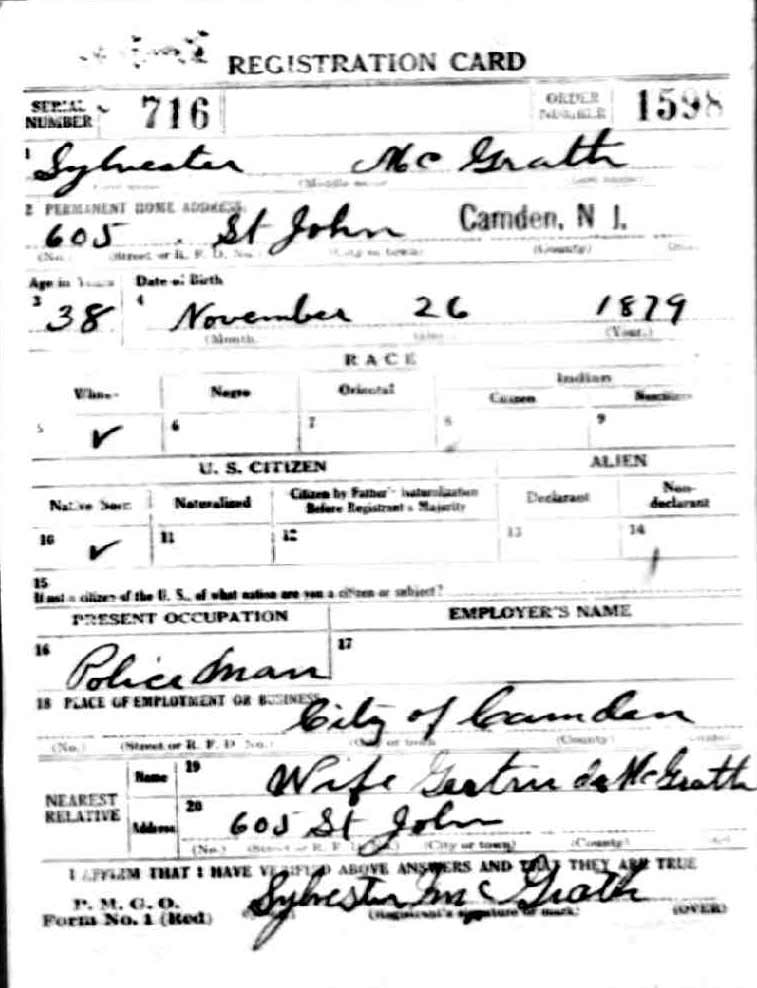 REGISTRATION CARD
SERIAL NUMBER 716 ORDER NUMBER 1598
1 Sylvester Mc Grath
(Middle name)
2 PERMANENT HOME ADDRESS:
605 St John Camden, N J.
(No.) (Street or R. F. D. No.) (City or town) (County)
Age in Years Date of Birth
3 38 4 November 26 1879
(Month) (Year.)
RACE
White Negro Oriental Indian
Citizen Noncitizen
5 ✓ 6 7 8 9
U. S. CITIZEN ALIEN
Native Born Naturalized Citizen by Father's Naturalization Before Registrant's Majority Declarant Non-declarant
10 ✓ 11 12 13 14
15
If not a citizen of the U. S., of what nation are you a citizen or subject?
PRESENT OCCUPATION EMPLOYER'S NAME
16 Police man 17
18 PLACE OF EMPLOYMENT OR BUSINESS:
City of Camden
(No.) (Street or R. F. D. No.) (City or town) (County)
NEAREST RELATIVE Name 19 Wife Gertrude McGrath
Address 20 605 St John
(No.) (Street or R. F. D. No.) (City or town) (County)
I AFFIRM THAT I HAVE VERIFIED ABOVE ANSWERS AND THAT THEY ARE TRUE
P. M. G. O.
Form No. 1 (Red) Sylvester Mc Grath
(Registrant's signature or mark) (OVER)